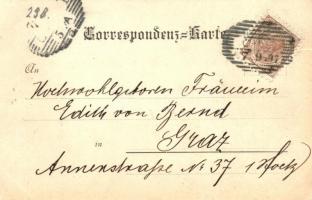 298.
Correspondenz-Karte
9.97
An
Hochwohlgeboren Fräulein
Edith von Bernd
in Graz
Annenstraße No 37 1 Stock